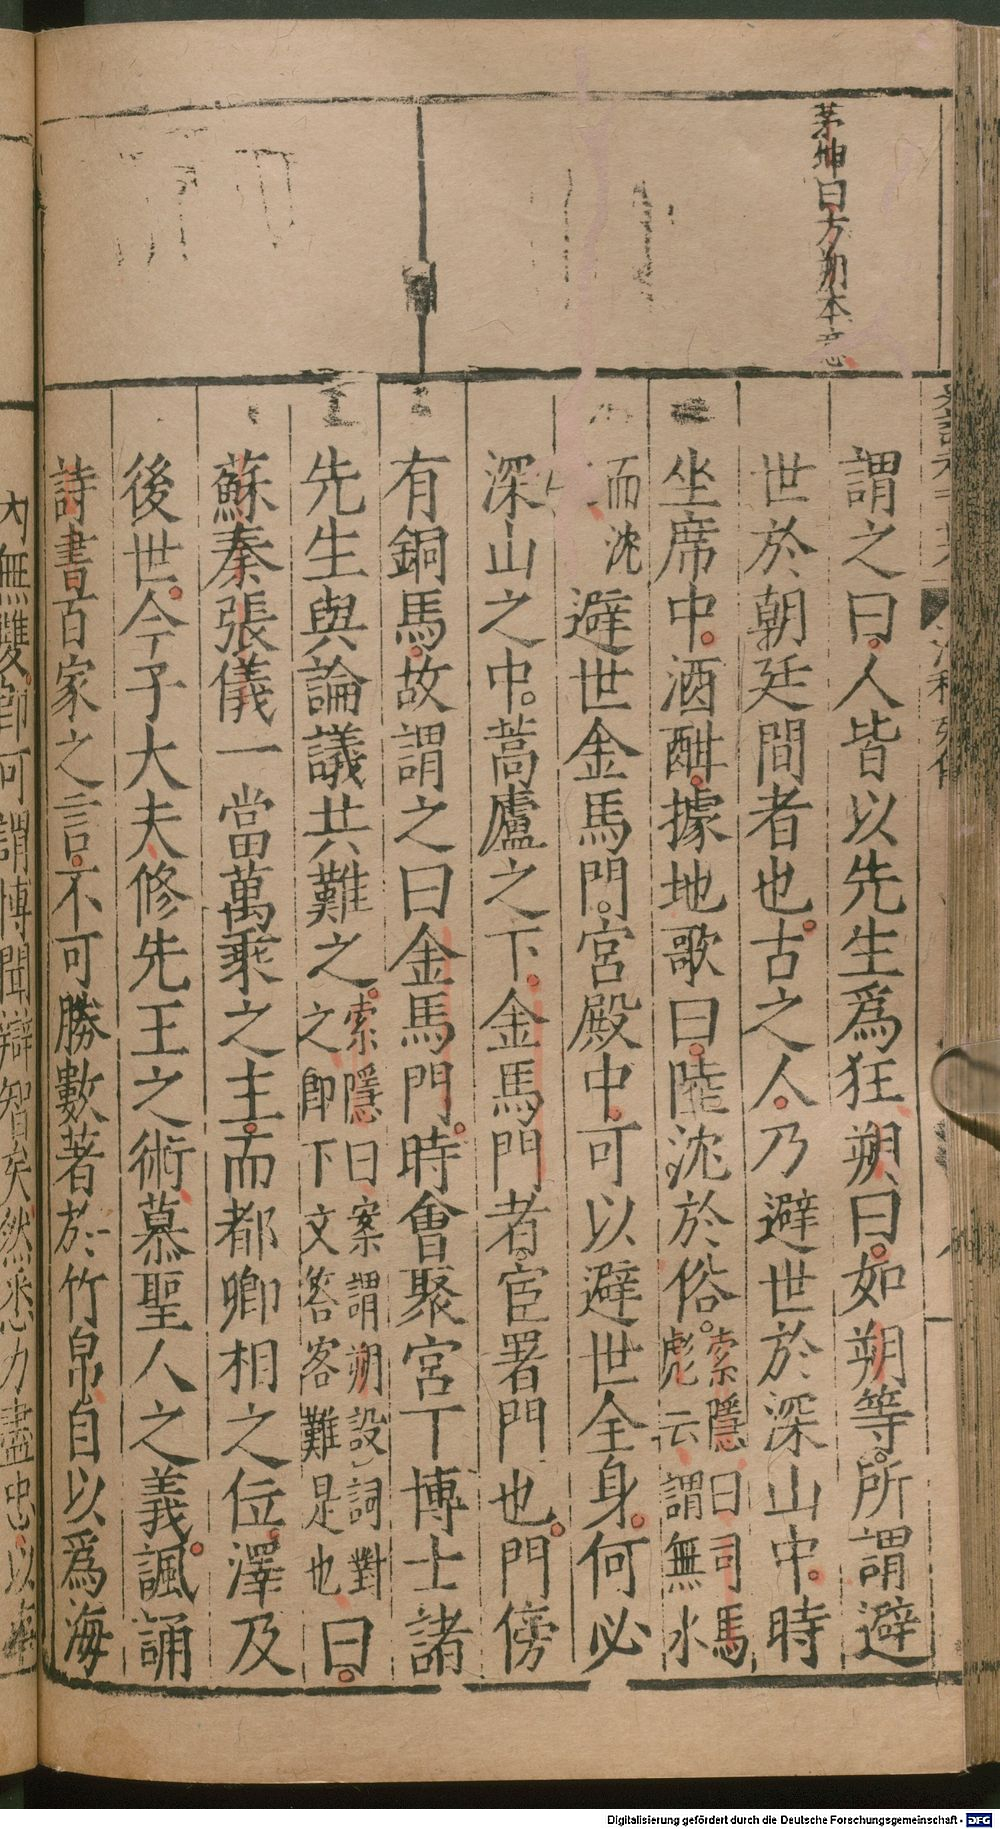 茅坤曰方朔本意
謂之曰人皆以先生爲狂朔曰如朔等所謂避
世於朝廷間者也古之人乃避世於深山中時
坐席中酒酣據地歌曰陸沈於俗索隱曰司馬彪云謂無水
而沈避世金馬門宮殿中可以避世全身何必
深山之中蒿廬之下金馬門者宦署門也門傍
有銅馬故謂之曰金馬門時會聚宮下博士諸
先生與論議共難之索隱曰案謂朔設詞對之卽下文答客難是也曰
蘇秦張儀一當萬乘之主而都卿相之位澤及
後世今子大夫修先王之術慕聖人之義諷誦
詩書百家之言不可勝數著於竹帛自以爲海
內無雙卽可謂博聞辯智矣然悉力盡忠以
Digitalisierung gefördert durch die Deutsche Forschungsgemeinschaft - DFG